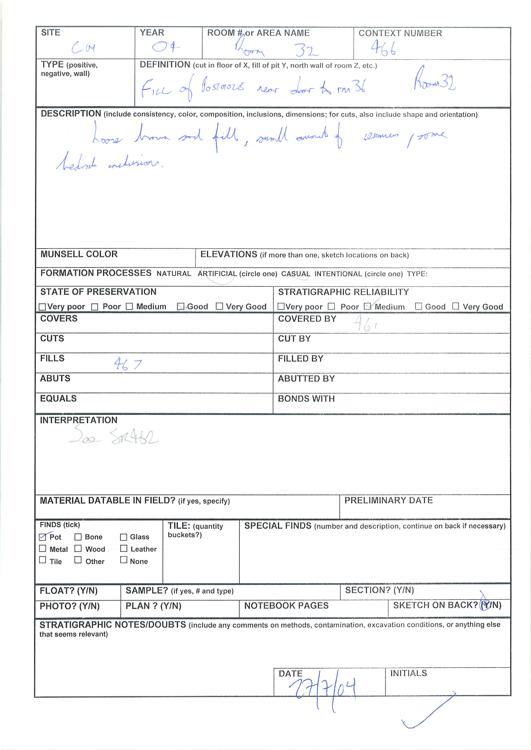 SITE YEAR ROOM #,or AREA NAME CONTEXT NUMBER
CM 04 Room 32 466
TYPE (positive, negative, wall) DEFINITION (cut in floor of X, fill of pit Y, north wall of room Z, etc.)
Fill of Posthole near door to rm 36 Room 32
DESCRIPTION (include consistency, color, composition, inclusions, dimensions; for cuts, also include shape and orientation)
Loose brown soil fill, small amounts of some
inclusions.
MUNSELL COLOR ELEVATIONS (if more than one, sketch locations on back)
FORMATION PROCESSES NATURAL ARTIFICIAL (circle one) CASUAL INTENTIONAL (circle one) TYPE:
STATE OF PRESERVATION STRATIGRAPHIC RELIABILITY
Very poor Poor Medium Good Very Good Very poor Poor Medium Good Very Good
COVERS COVERED BY 461
CUTS CUT BY
FILLS 467 FILLED BY
ABUTS ABUTTED BY
EQUALS BONDS WITH
INTERPRETATION
See
MATERIAL DATABLE IN FIELD? (if yes, specify) PRELIMINARY DATE
FINDS (tick) TILE: (quantity buckets?) SPECIAL FINDS (number and description, continue on back if necessary)
Pot Bone Glass
Metal Wood Leather
Tile Other None
FLOAT? (Y/N) SAMPLE? (if yes, # and type) SECTION? (Y/N)
PHOTO? (Y/N) PLAN ? (Y/N) NOTEBOOK PAGES SKETCH ON BACK? (Y/N)
STRATIGRAPHIC NOTES/DOUBTS (include any comments on methods, contamination, excavation conditions, or anything else
that seems relevant)
DATE INITIALS
27/7/04